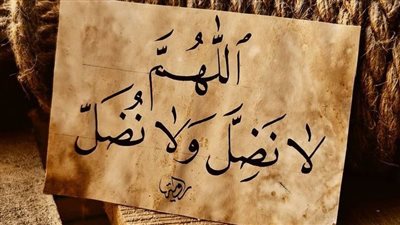 ٱللَّهُمَّ
لَا نَضِلَّ وَلَا نُضَلَّ